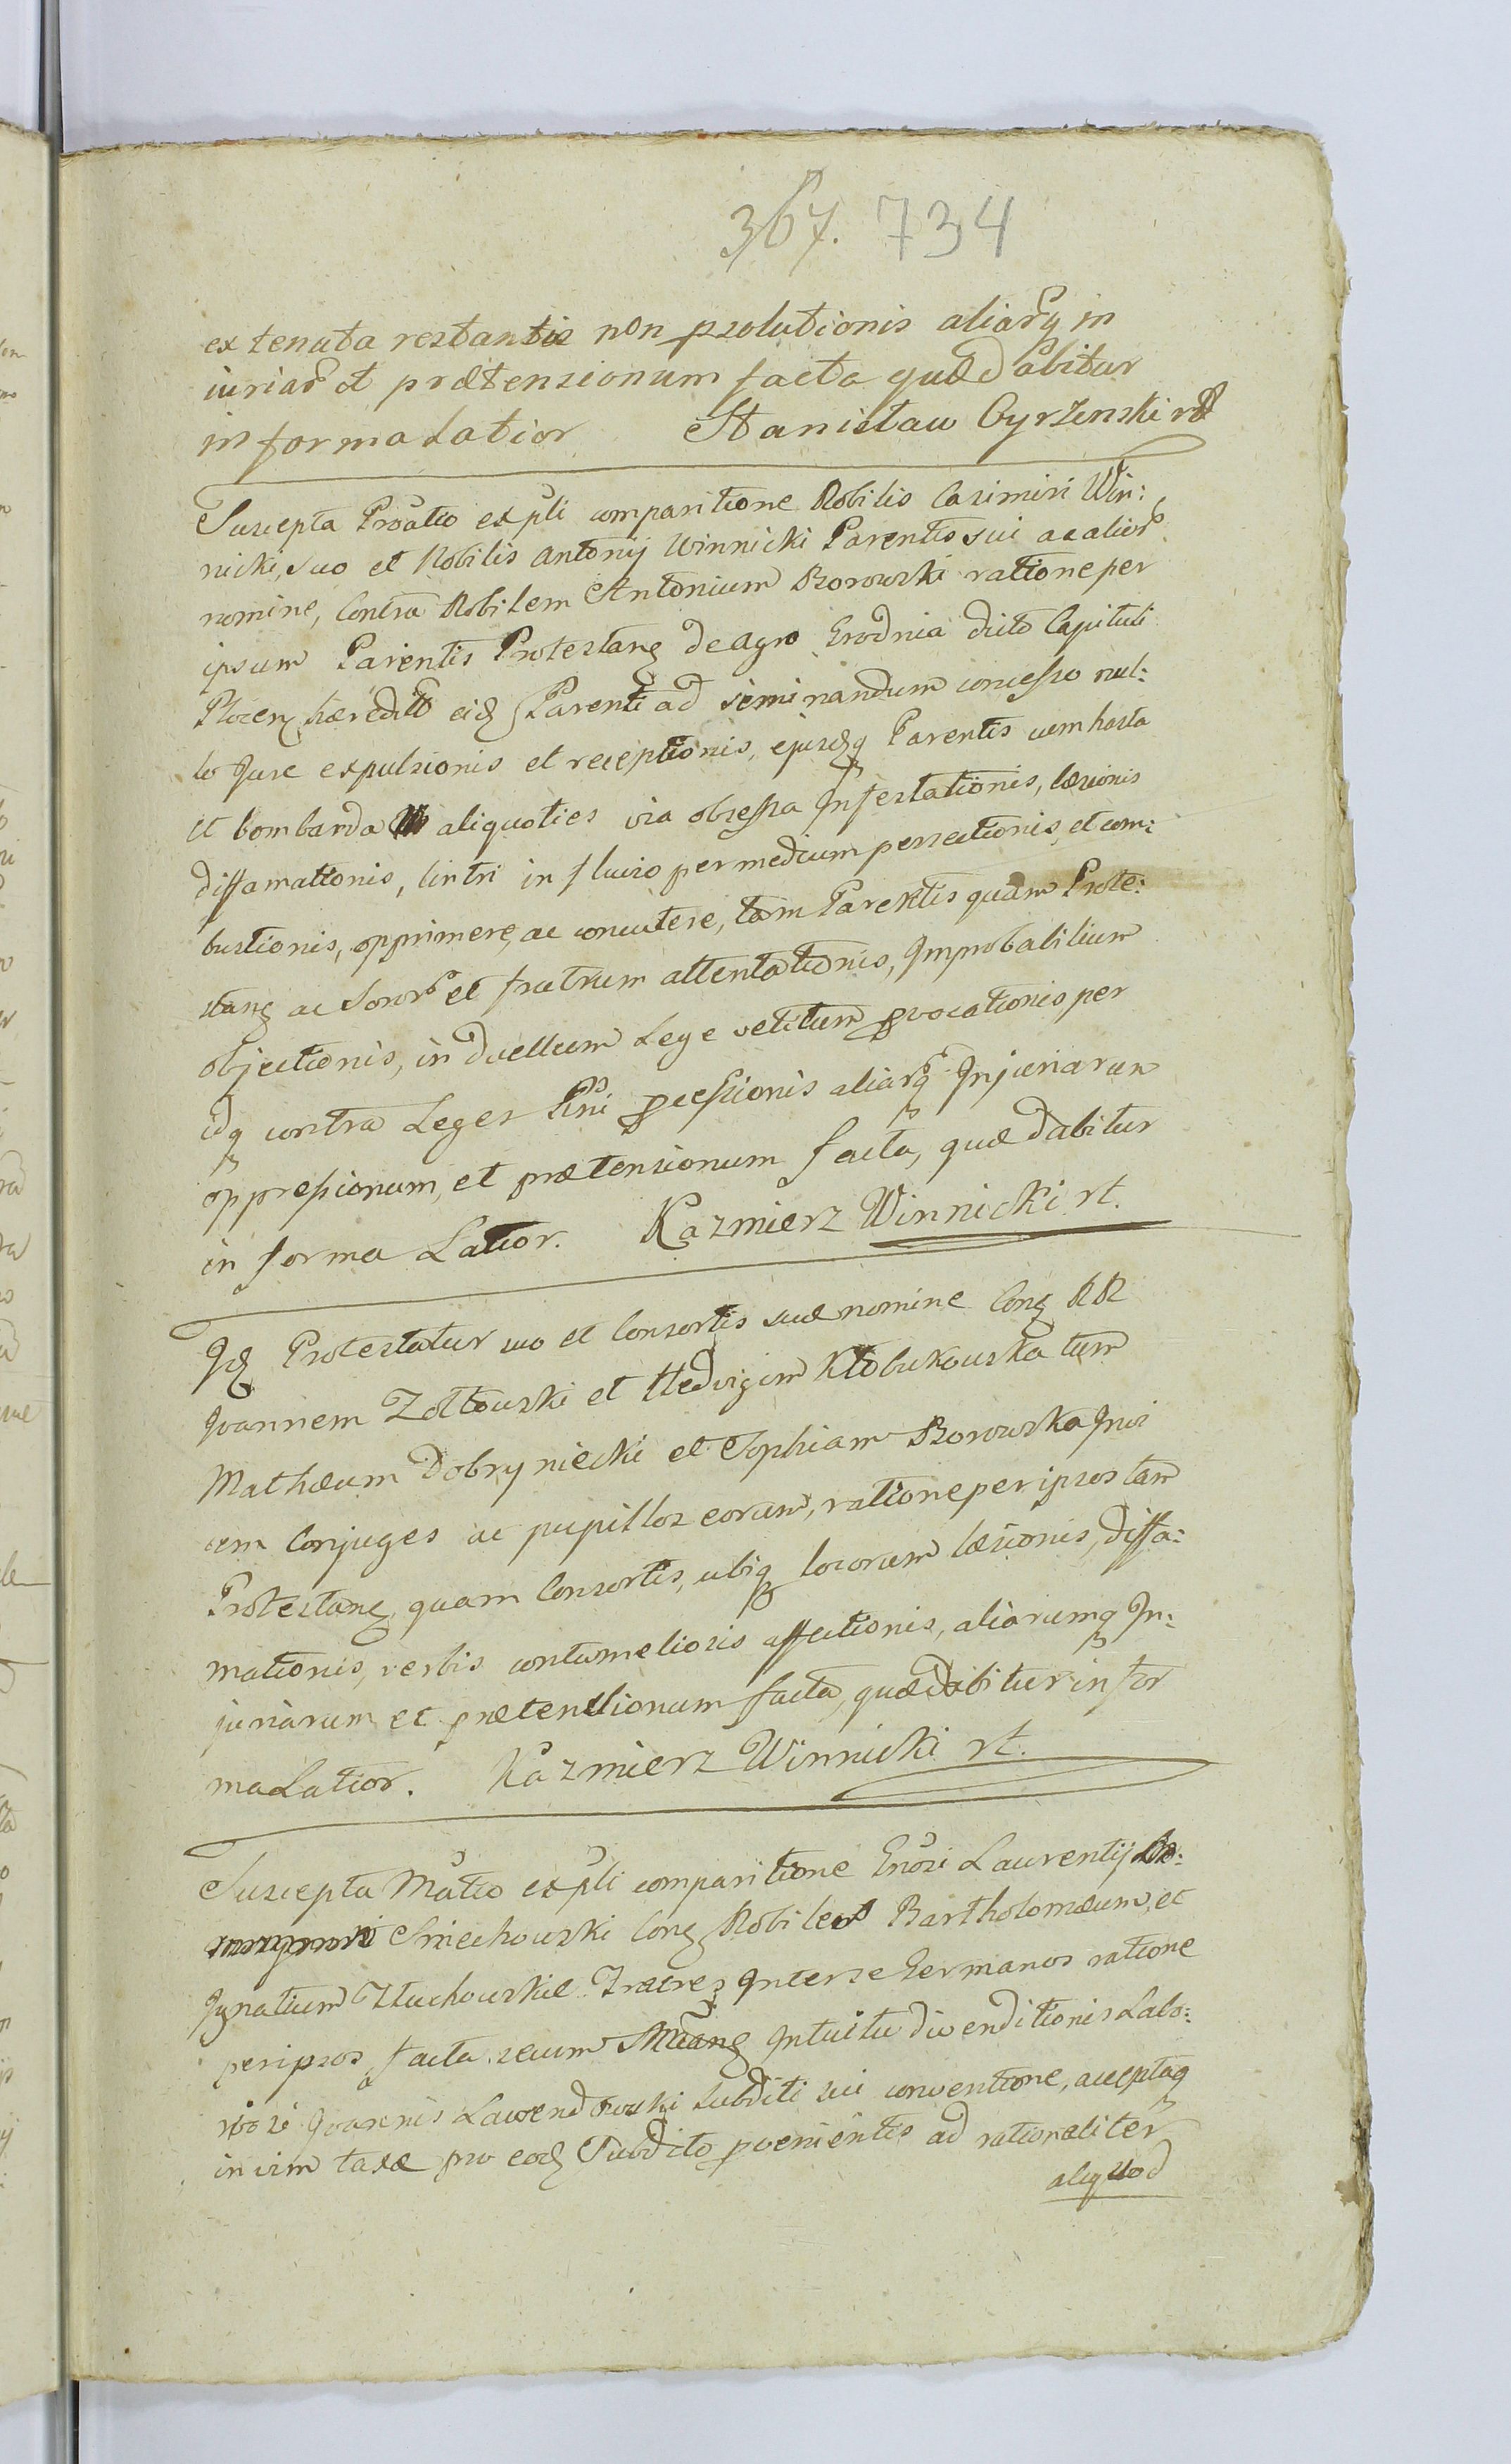 367. 734
ex tenuta restantis non psolutionis aliarq in
iuriar et prætensionum facta quæ dabitur
in forma Latior Stanisław Cyrzenski
Suscepta Proatio ex pli comparitione Nobilis Casimiri Win:
nicki, suo et Nobilis Antonij Winnicki Parentis sui ac alior
nomine, Contra Nobilem Antonium Borowski ratione per
ipsum Parentis Protestang de agro Grodnia dicto Capituli
Plocen hæredit eid Parenti ad seminandum concesso nul:
lo Jure expulsionis et receptionis, ejusdq Parentis cum hasta
et bombarda aliquoties via obsessa Infestationis, læsionis
diffamationis, lintri in fluvio per medium persectionis et com:
bustionis, opprimere, ac concutere, tam Parentis quam Prote:
stang ac Soror et fratrum attentationis, Improbabilium
objectionis, in duellum Lege vetitum pvocationis per
idq contra Leges Rni pcessionis aliarq Injuriarum
oppressionum, et prætensionum facta, quæ dabitur
in forma Latior. Kazmierz Winnicki rt.
Id Protestatur suo et Consortis suæ nomine Cong NN
Joannem Zołtowski et Hedvigem Kłobukowska tum
Mathæum Dobryniecki et Sophiam Borowska Invi
cem Conjuges ac pupillos eorum, ratione per ipsos tam
Protestang, quam Consortis, ubiq locorum læsionis, diffa:
mationis, verbis contumeliosis affectionis, aliarumq In:
juriarum et prætensionum facta, quæ dabitur in for
ma Latior. Kazmierz Winnicki rt.
Suscepta Matio ex pli comparitione Gnosi Laurentij
Smiechowski Cong Nobiles Bartholomæum, et
Ignatium Złuchowskie Fratres Inter se Germanos ratione
per ipsos facta secum Intuitu divenditionis Labo:
Joannis Lawendowski Subditi sui conventione, acceptaq
in vim taxæ pro eod Subdito pvenientis ad rationaliter
aliquod